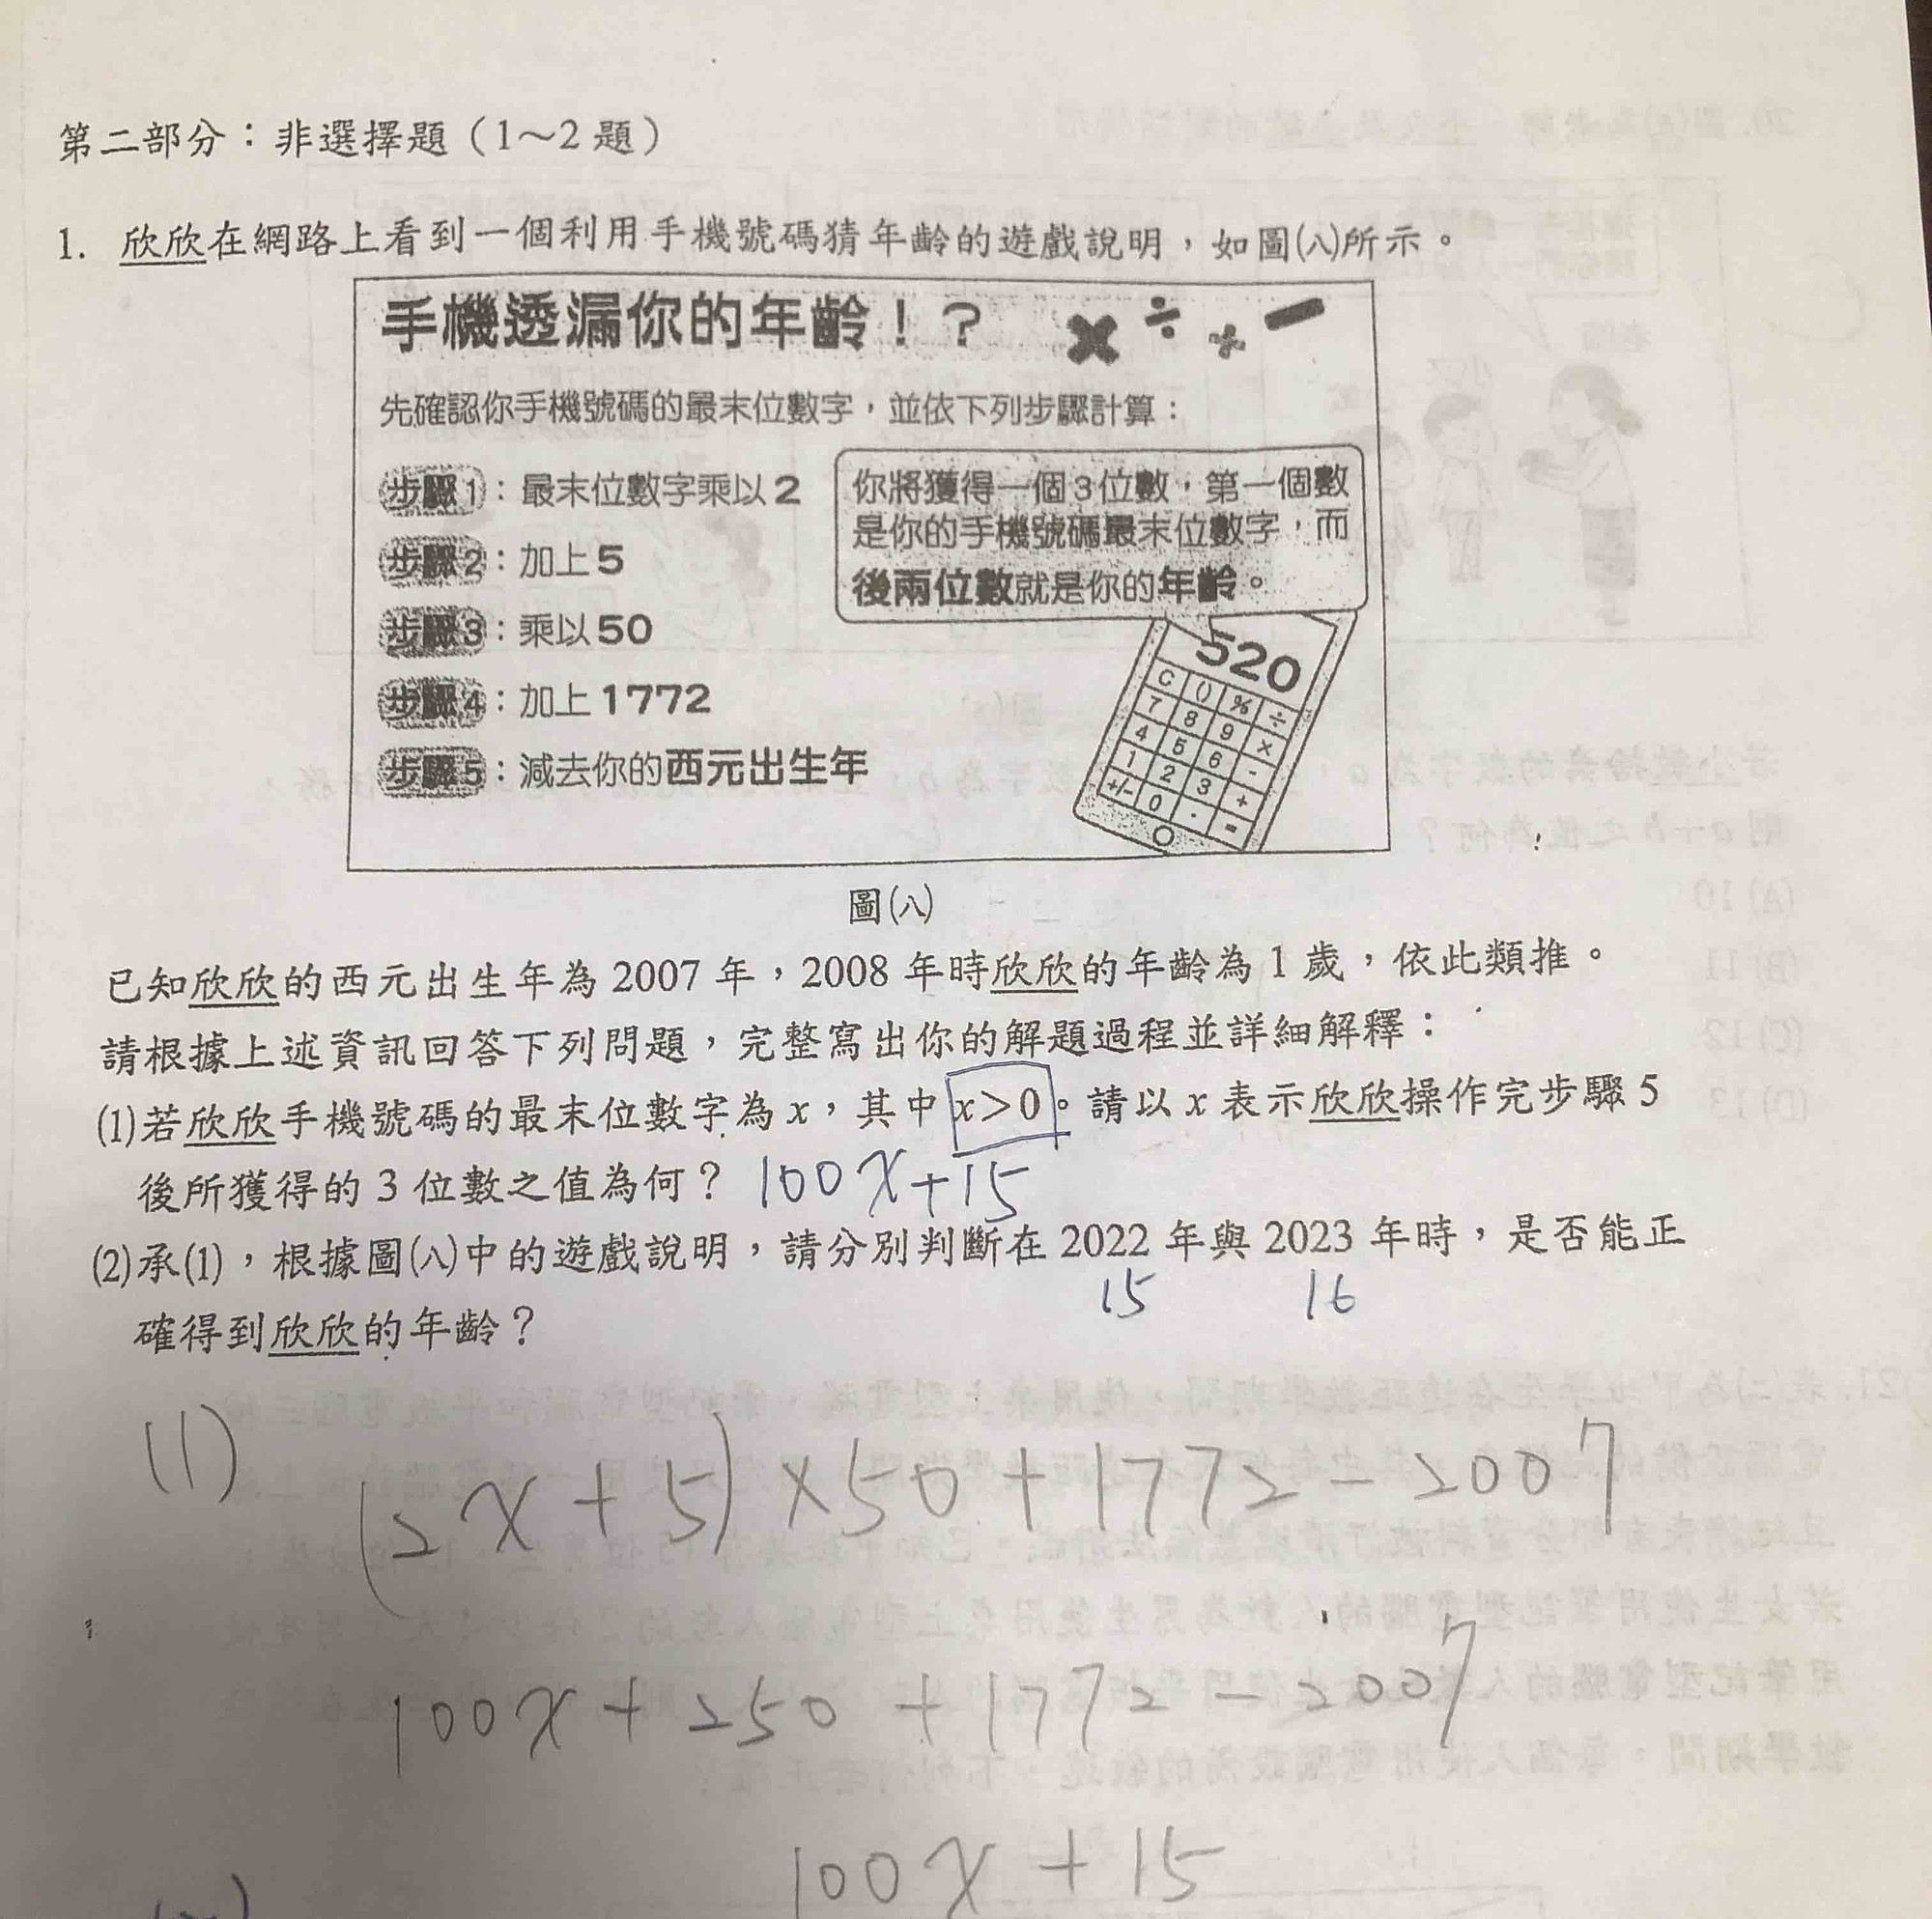 第二部分：非選擇題（1～2 題）
1. 欣欣在網路上看到一個利用手機號碼猜年齡的遊戲說明，如圖(八)所示。
手機透漏你的年齡！？ × ÷ + −
先確認你手機號碼的最末位數字，並依下列步驟計算：
步驟1：最末位數字乘以2
步驟2：加上5
步驟3：乘以50
步驟4：加上1772
步驟5：減去你的西元出生年
你將獲得一個3位數，第一個數
是你的手機號碼最末位數字，而
後兩位數就是你的年齡。
520
C () % ÷
7 8 9 ×
4 5 6 -
1 2 3 +
+/- 0 . =
圖(八)
已知欣欣的西元出生年為 2007 年，2008 年時欣欣的年齡為 1 歲，依此類推。
請根據上述資訊回答下列問題，完整寫出你的解題過程並詳細解釋：
(1)若欣欣手機號碼的最末位數字為 x，其中 x>0。請以 x 表示欣欣操作完步驟 5
後所獲得的 3 位數之值為何？ 100x+15
(2)承(1)，根據圖(八)中的遊戲說明，請分別判斷在 2022 年與 2023 年時，是否能正
15 16
確得到欣欣的年齡？
(1) (2x+5)×50+1772-2007
100x+250+1772-2007
100x+15